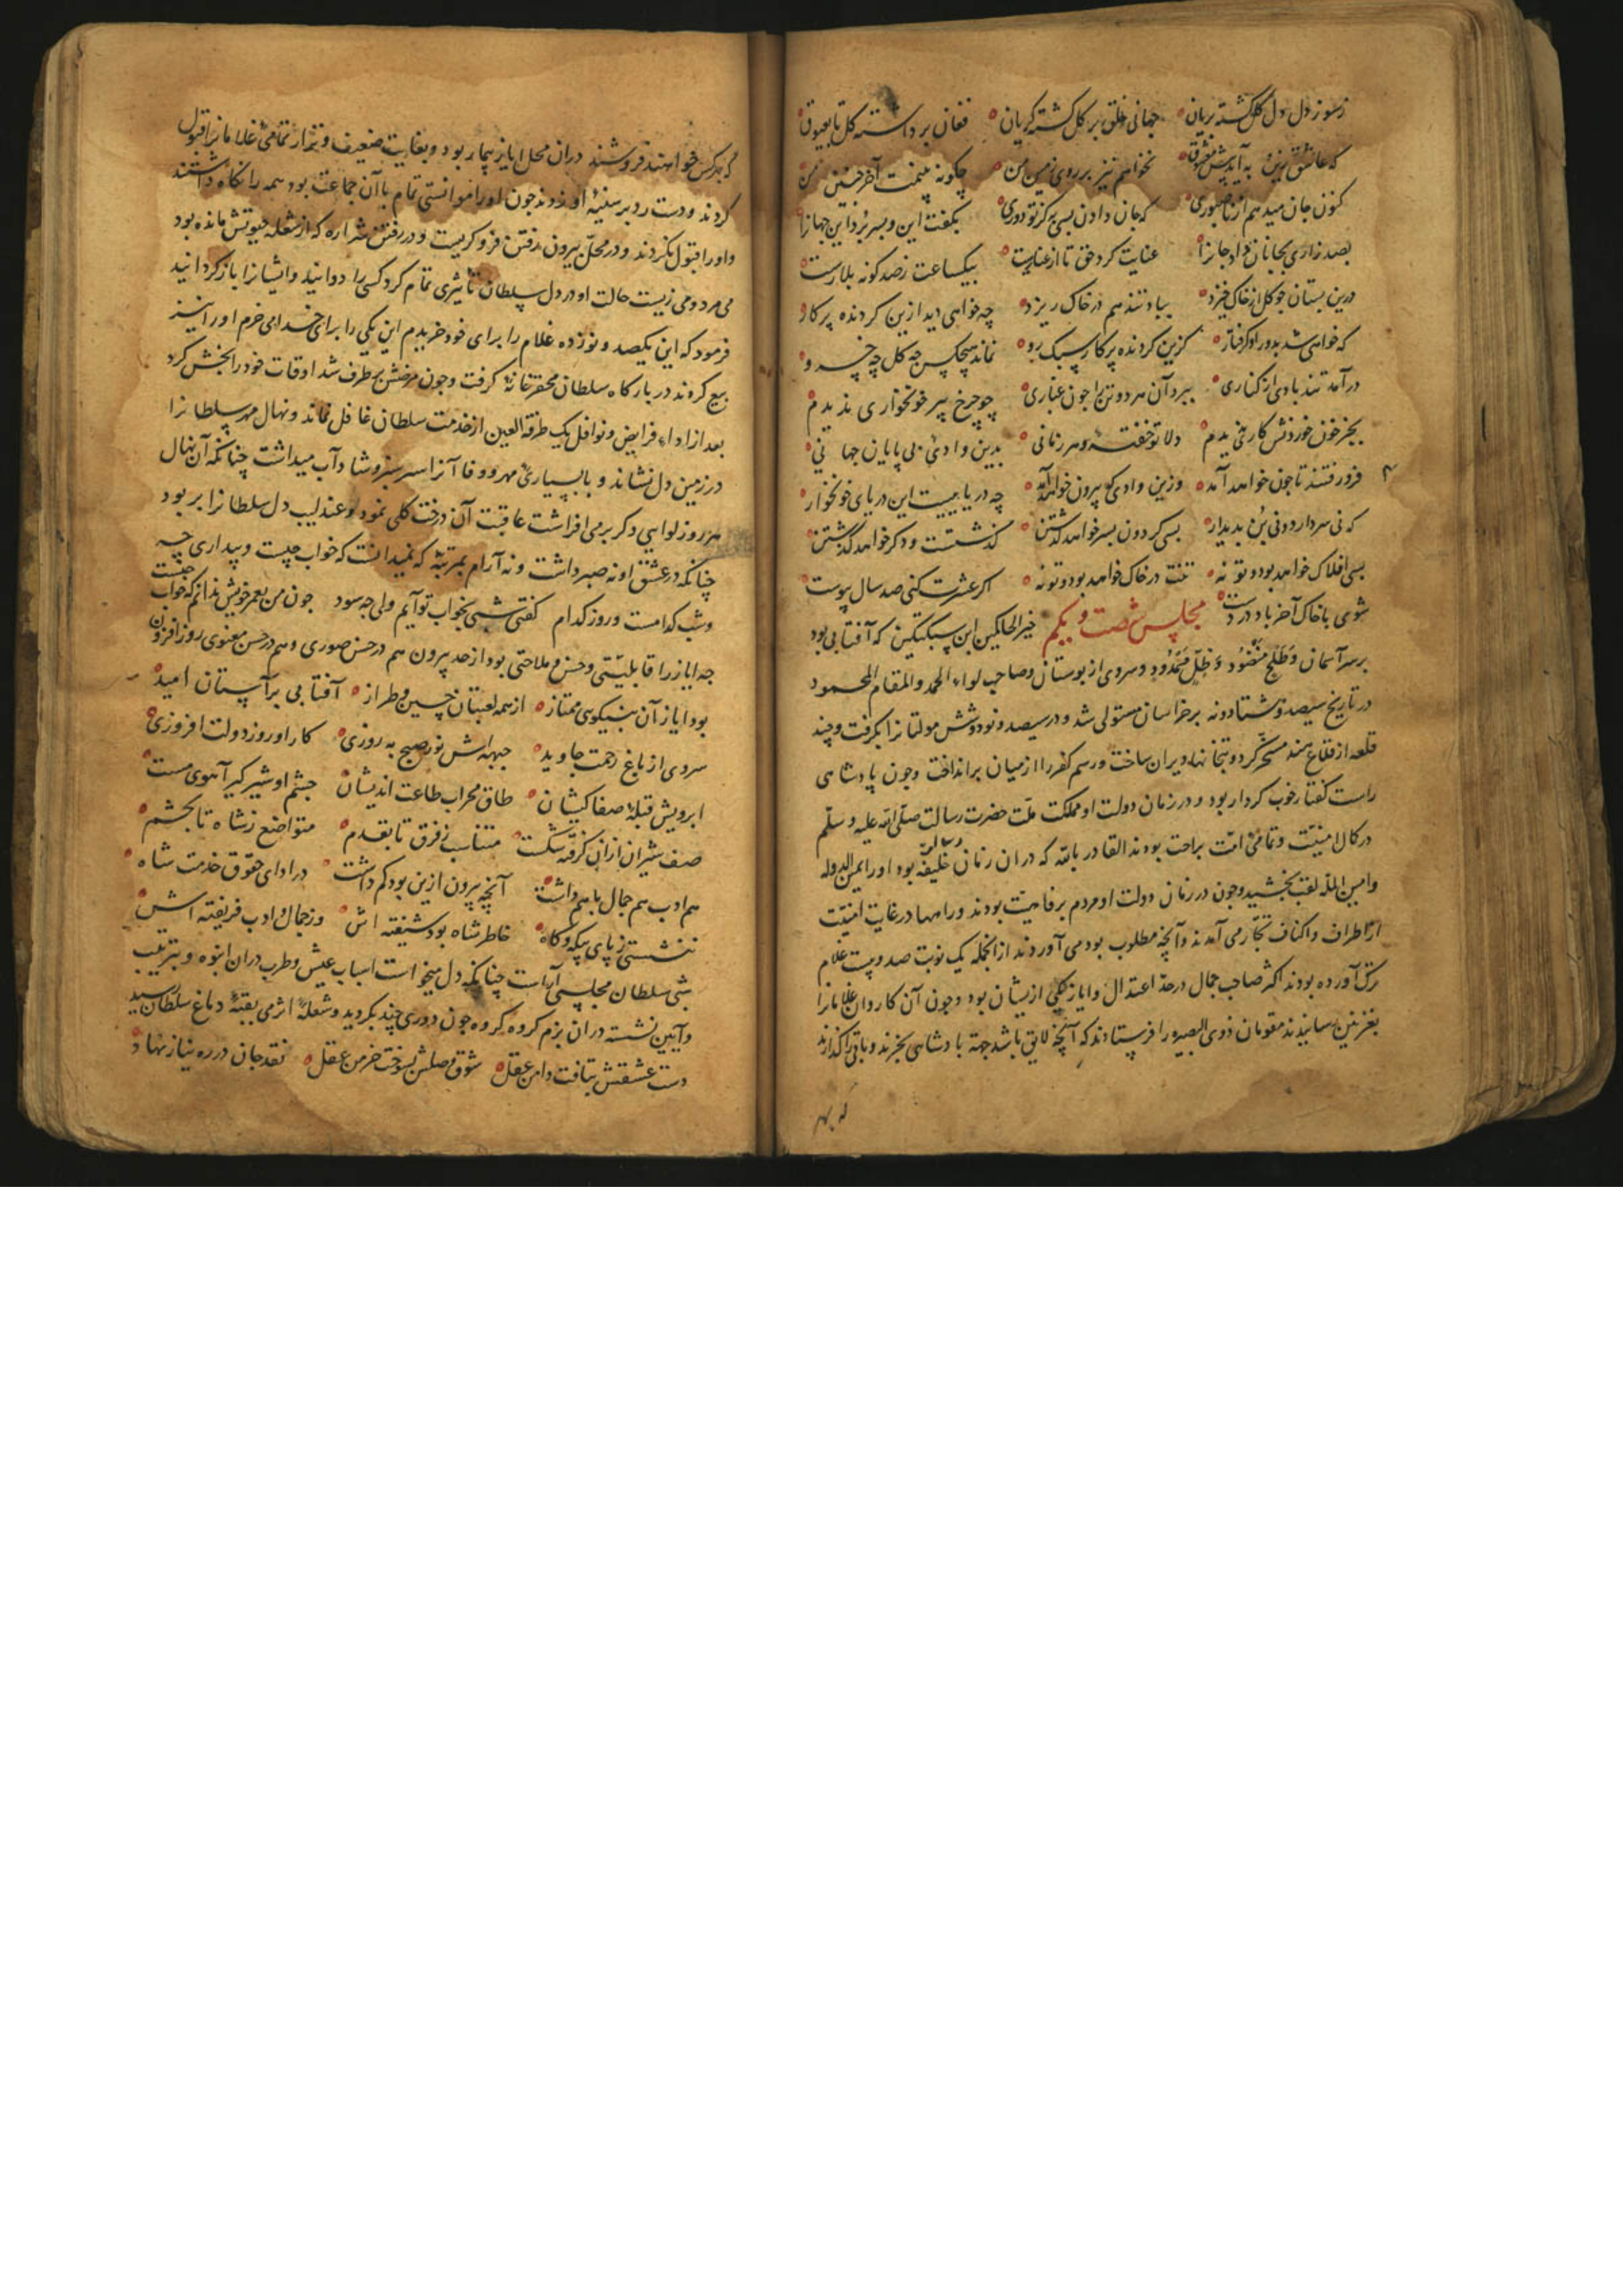 ز سوز دل دل گل گشته بریان جهانی خلق بر گل گشته گریان فغان برداشته گل تا بعیوق
که عاشق نیز به آید پیش معشوق نخواهم نیز بر روی زمین من چگونه بینمت آخر چنین من
کنون جان میدهم از ناصبوری که جان دادن بسی به کز تو دوری بگفت این و بسر برد این جهانرا
بصد زاری بجانان داد جانرا عنایت کرد حق تا از عنایت بیکساعت ز صد کونه بلا رست
درین بستان چو کل از خاک خیزد بباد تند هم در خاک ریزد چه خواهی دید ازین کردنده پرکار
که خواهی شد بدور او کرفتار کزین کردنده پرکار سبک رو نماند هیچکس چه کل چه خسرو
درآمد تند بادی از کناری ببرد آن هر دو تن را چون غباری چو چرخ پیر خونخواری ندیدم
بجز خون خوردنش کاری ندیدم دلا تو خفته و هر زمانی بدین وادی بی پایان جهانی
فرو رفتند تا چون خواهد آمد وزین وادی که بیرون خواهد آمد چه دریاییست این دریای خونخوار
که نی سر دارد و نی بن پدیدار بسی کردون بسر خواهد کذشتن کذشتست و دکر خواهد کذشتن
بسی افلاک خواهد بود و تو نه تنت در خاک خواهد بود و تو نه اکر عشرت کنی صد سال پیوست
شوی با خاک آخر باد در دست مجلس شصت و یکم خیر الحاکمین ابن سبکتکین که آفتابی بود
بر سر آسمان و طلح منضود و ظل ممدود و سروی از بوستان و صاحب لواء الحمد والمقام المحمود
در تاریخ سیصد و هشتاد و نه بر خراسان مستولی شد و در سیصد و نود و شش مولتانرا بکرفت و چند
قلعه از قلاع هند مسخر کرد و بتخانها ویران ساخت و رسم کفر را از میان برانداخت و چون پادشاهی
راست کفتار خوب کردار بود و در زمان دولت او مملکت ملت حضرت رسالت صلی الله علیه و سلم
در کمال امنیت و تمامی امت براحت بودند القادر بالله که در ان زمان خلیفه بود او را یمین الدوله
و امین المله لقب بخشید و چون در زمان دولت او مردم برفاهیت بودند و راهها در غایت امنیت
از اطراف و اکناف تجار می آمدند و آنچه مطلوب بود می آوردند از انجمله یک نوبت صد و بیست غلام
ترک آورده بودند اکثر صاحب جمال در حد اعتدال و ایاز یکی ازیشان بود و چون آن کاروان غلامانرا
بغزنین رسانیدند مقومان ذوی البصیره را فرستادند که آنچه لایق باشد جهة پادشاهی بخرند و باقی را کذارند
که بهر
که بهر کس خواهند فروشند در ان محل ایاز بیمار بود و بغایت ضعیف و نزار تمامی غلامانرا قبول
کردند و دست رد بر سینهٔ او زدند چون او را موانستی تمام با آن جماعت بود همه را نکاه داشتند
و او را قبول نکردند و در محل بیرون رفتن فرو کریست و در رفتن شراره که از شعله حیوتش مانده بود
می مرد و می زیست حالت او در دل سلطان تاثیری تمام کرد کسی را دوانید و ایشانرا باز کردانید
فرمود که این یکصد و نوزده غلام را برای خود خریدم این یکی را برای خدا می خرم او را نیز
بیع کردند در بارکاه سلطان محقر خانهٔ کرفت و چون مرضش بر طرف شد اوقات خود را بخش کرد
بعد از اداء فرایض و نوافل یک طرفة العین از خدمت سلطان غافل نماند و نهال مهر سلطانرا
در زمین دل نشاند و بابیاری مهر و وفا آنرا سرسبز و شاداب میداشت چنانکه آن نهال
هر روز لوایی دکر بر می افراشت عاقبت آن درخت کلی نمود و عندلیب دل سلطانرا بربود
چنانکه در عشق او نه صبر داشت و نه آرام بمرتبهٔ که نمیدانست که خواب چیست و بیداری چه
و شب کدامست و روز کدام کفتی شبی بخواب تو آیم ولی چه سود چون من بعمر خویش ندانم که خواب چیست
چه ایاز را قابلیتی و حسن و ملاحتی بود از حد بیرون هم در حسن صوری و هم در حسن معنوی روز افزون
بود ایاز آن بنیکویی ممتاز از همه لعبتان چین و طراز آفتابی بر آسمان امید
سروی از باغ رحمت جاوید جبهه اش نور صبح به روزی کار او روز دولت افروزی
ابرویش قبلهٔ صفا کیشان طاق محراب طاعت اندیشان چشم او شیر کیر آهوی مست
صف شیران ازان کرفته شکست متناسب ز فرق تا بقدم متواضع ز شاه تا بحشم
هم ادب هم جمال با هم داشت آنچه بیرون ازین بود کم داشت در ادای حقوق خدمت شاه
ننشستی ز پای بیکه و کاه خاطر شاه بود شیفته اش وز جمال و ادب فریفته اش
شبی سلطان مجلسی آراست چنانکه دل میخواست اسباب عیش و طرب در ان انبوه و بترتیب
و آیین نشسته در ان بزم کروه کروه چون دوری چند بکردید و شعلهٔ اثر می بقبهٔ دماغ سلطان رسید
دست عشقش بتافت دامن عقل شوق وصلش بسوخت خرمن عقل نقد جان در ره نیاز نهاد